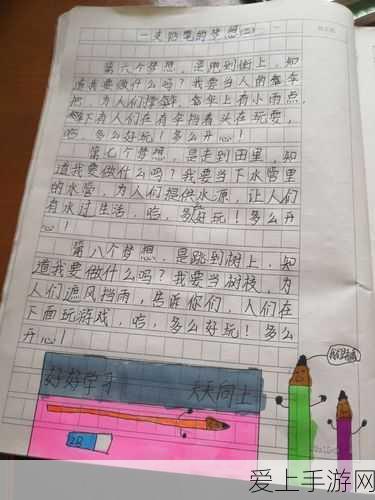 一支铅笔的梦想(三)
第六个梦想,是跑到街上,知
道我要做什么吗?我要当人的伞
把,为人们撑伞,伞上有小雨点,
下有人们在有伞挡着头在玩耍,
哈,多么好玩!多么开心!
第七个梦想,是走到田里,知
道我要做什么吗?我要当下水管里
的水管,为人们提供水源,让人们
有水过生活,哈,多么好玩!多么开
心!
第八个梦想,是跳到树上,知
道我要做什么吗?我要当树枝,为
人们遮风挡雨,告诉你们,人们在
下面玩游戏,哈,多么好玩!多么
开心!
好好学习 天天向上
2B
爱上手游网